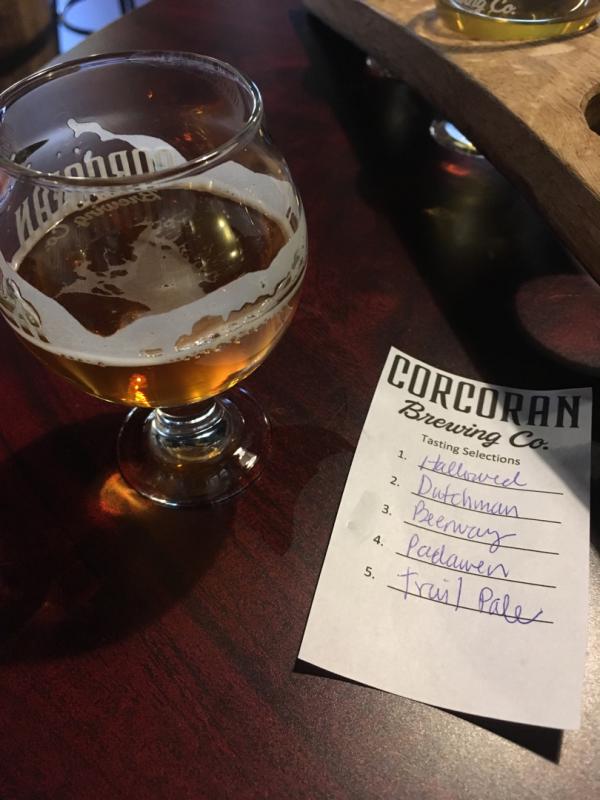 CORCORAN
Brewing Co.
CORCORAN
Brewing Co.
Tasting Selections
1. Hallowed
2. Dutchman
3. Beerway
4. Padawen
5. Trail Pale